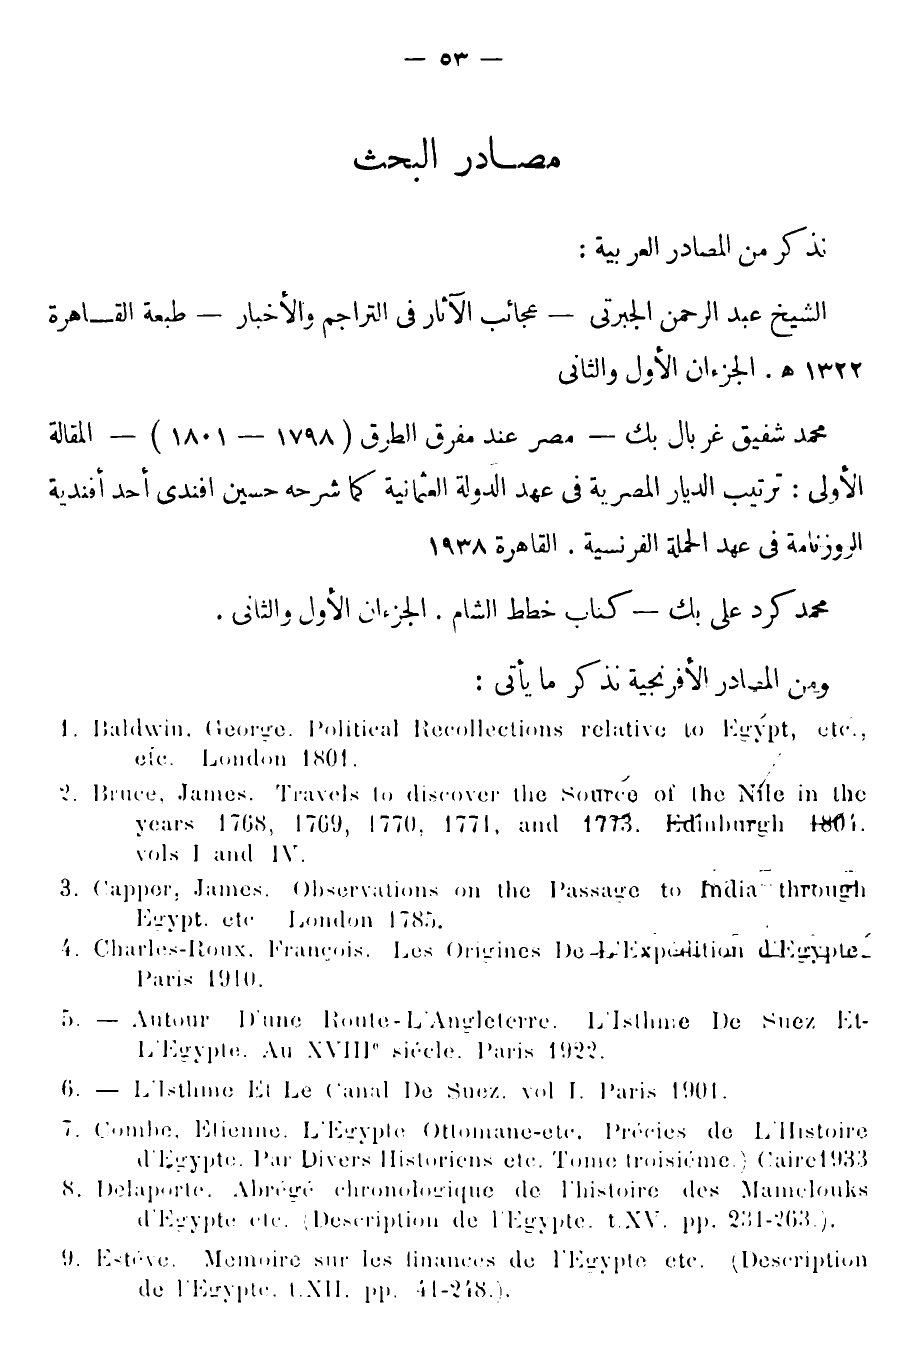 — ٥٣ —
مصـادر البحث
نذكر من المصادر العربية :
الشيخ عبد الرحمن الجبرتى — عجائب الآثار فى التراجم والأخبار — طبعة القـاهرة
١٣٢٢ ه . الجزءان الأول والثانى
محمد شفيق غربال بك — مصر عند مفرق الطرق ( ١٧٩٨ — ١٨٠١ ) — المقالة
الأولى : ترتيب الديار المصرية فى عهد الدولة العثمانية كما شرحه حسين افندى أحد أفندية
الروزنامة فى عهد الحملة الفرنسية . القاهرة ١٩٣٨
محمد كرد على بك — كتاب خطط الشام . الجزءان الأول والثانى .
ومن المصادر الأفرنجية نذكر ما يأتى :
1. Baldwin, George. Political Recollections relative to Egypt, etc.,
etc. London 1801.
2. Bruce, James. Travels to discover the Source of the Nile in the
years 1768, 1769, 1770, 1771, and 1773. Edinburgh 1804.
vols I and IV.
3. Capper, James. Observations on the Passage to India through
Egypt. etc London 1785.
4. Charles-Roux, François. Les Origines De L'Expédition d'Egypte.
Paris 1910.
5. — Autour D'une Route-L'Angleterre. L'Isthme De Suez Et-
L'Egypte. Au XVIIIe siécle. Paris 1922.
6. — L'Isthme Et Le Canal De Suez. vol I. Paris 1901.
7. Combe, Etienne. L'Egypte Ottomane-etc. Précies de L'Histoire
d'Egypte. Par Divers Historiens etc. Tome troisiéme.) Caire1933
8. Delaporte. Abrégé chronologique de l'histoire des Mamelouks
d'Egypte etc. (Description de l'Egypte. t.XV. pp. 231-263.).
9. Estéve. Memoire sur les finances de l'Egypte etc. (Description
de l'Egypte. t.XII. pp. 41-248.).